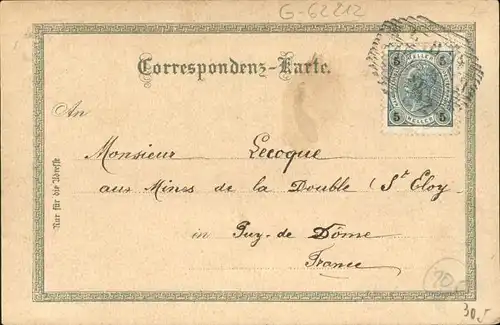 G-62212
Correspondenz-Karte.
5 HELLER 5
5 HELLER 5
An
Monsieur Lecoque
aux Mines de la Double (St Eloy
in Puy-de Dôme
France
Nur für die Adresse
10
305